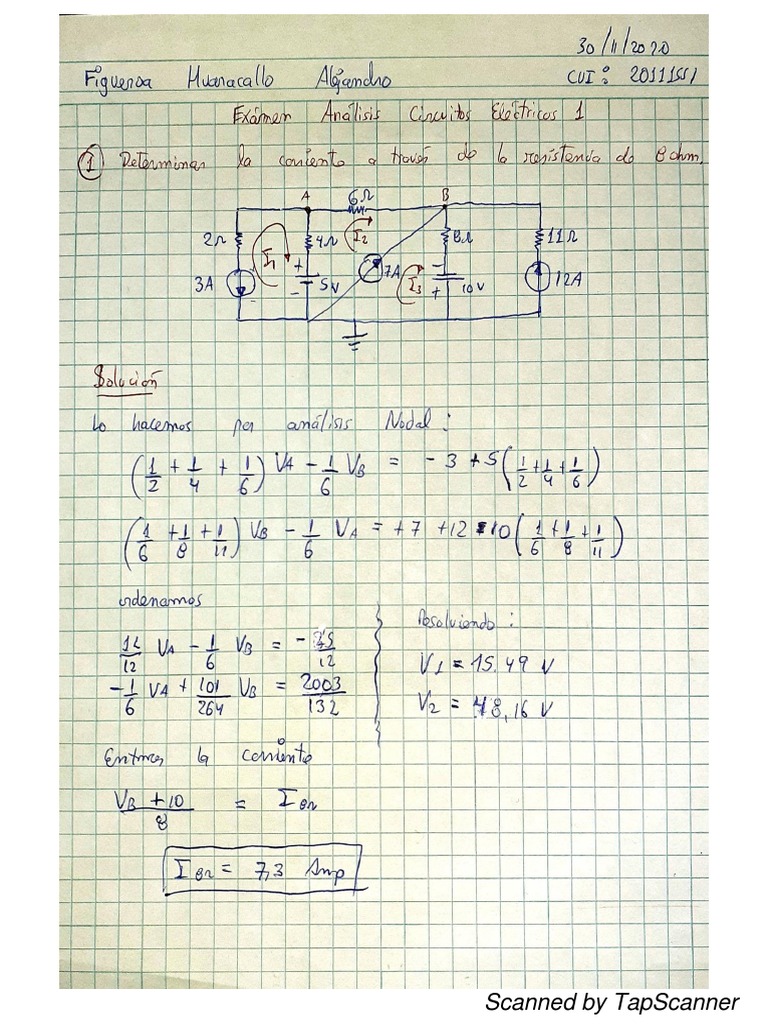 30/11/2020
Figueroa Huanacallo Alejandro CUI: 20111551
Exámen Análisis Circuitos Eléctricos 1
① Determinar la corriente a través de la resistencia de 8 ohm.
A 6Ω B
2Ω I1 4Ω I2 8Ω 11Ω
3A + 5V - 7A I3 - 10V + 12A
Solución
Lo hacemos por análisis Nodal:
(1/2 + 1/4 + 1/6) VA - 1/6 VB = - 3 + 5 (1/2 + 1/4 + 1/6)
(1/6 + 1/8 + 1/11) VB - 1/6 VA = +7 +12 10 (1/6 + 1/8 + 1/11)
ordenamos
/12 VA - 1/6 VB = - /12
-1/6 VA + 101/264 VB = 2003/132
Resolviendo:
V1 = 15.49 V
V2 = 48,16 V
Entonces la corriente
VB + 10 / 8 = I8Ω
I8Ω = 7,3 Amp
Scanned by TapScanner